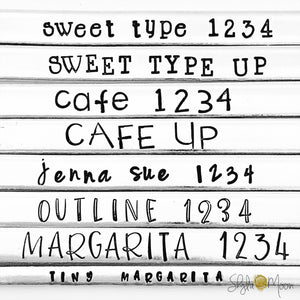 sweet type 1234
SWEET TYPE UP
cafe 1234
CAFE UP
jenna sue 1234
OUTLINE 1234
MARGARITA 1234
TINY MARGARITA
Style Moon